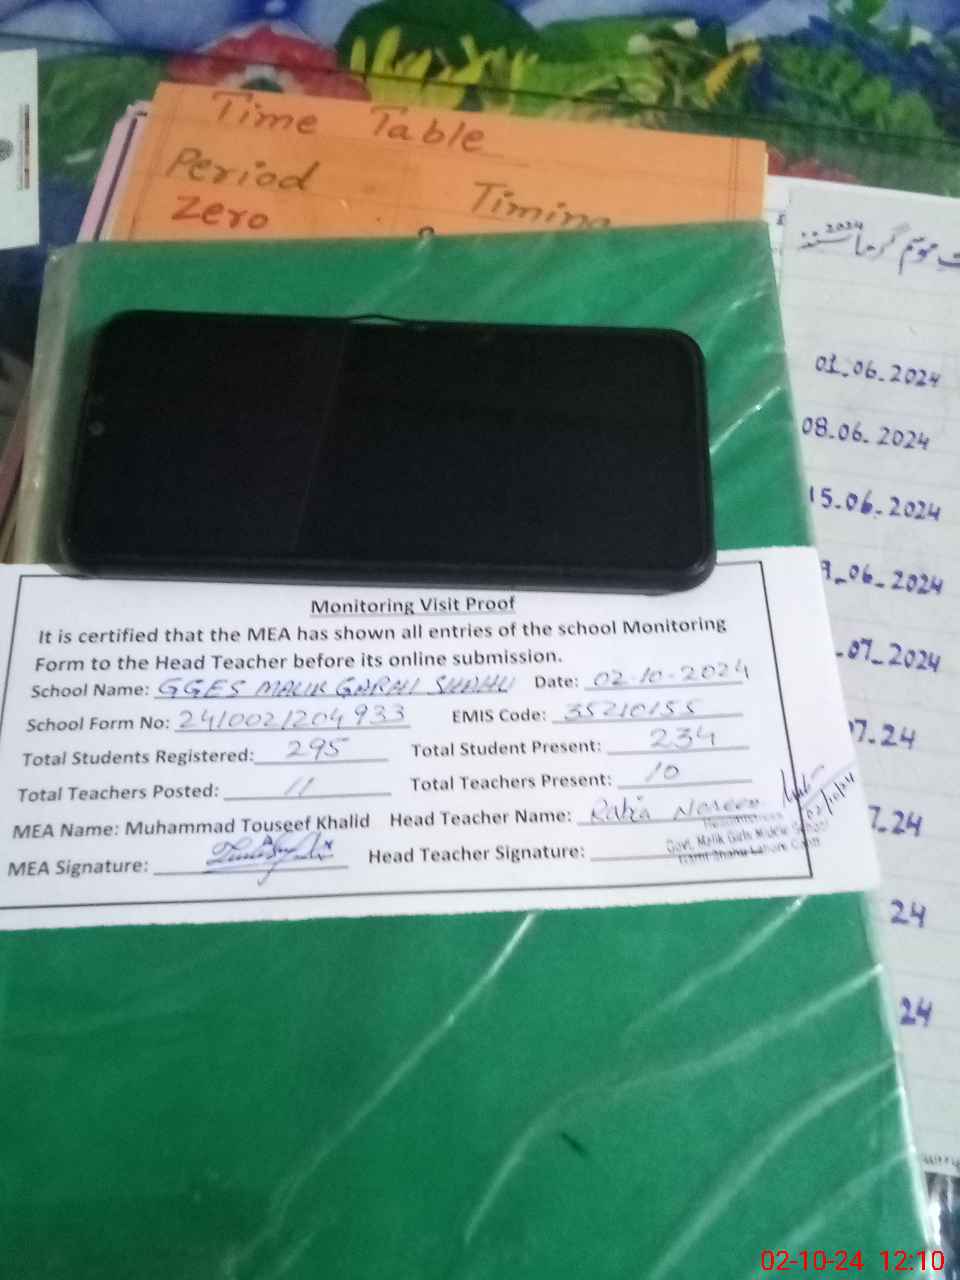 Time Table
Period Timing
Zero
2024
01_06_2024
08_06_2024
15_06_2024
9_06_2024
_07_2024
7.24
7.24
24
24
Monitoring Visit Proof
It is certified that the MEA has shown all entries of the school Monitoring
Form to the Head Teacher before its online submission.
School Name: GGES MALIK GARHI SHAHU Date: 02-10-2024
School Form No: 2410021204933 EMIS Code: 35210155
Total Students Registered: 295 Total Student Present: 234
Total Teachers Posted: 11 Total Teachers Present: 10
MEA Name: Muhammad Touseef Khalid Head Teacher Name: Rabia
02/10/24
MEA Signature: Head Teacher Signature:
Govt. Malik Girls Middle School
Garhi Shahu Lahore Cantt
02-10-24 12:10